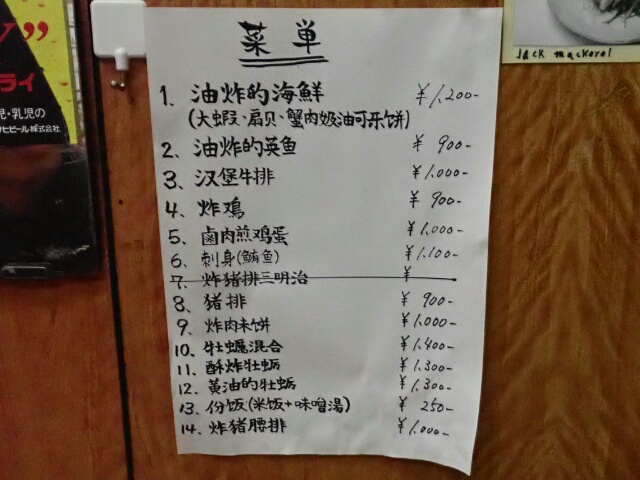 菜单
1、油炸的海鮮 ¥1,200-
(大蝦、扇贝、蟹肉奶油可乐饼)
2、油炸的英鱼 ¥900-
3、汉堡牛排 ¥1,000-
4、炸鳮 ¥900-
5、鹵肉煎鸡蛋 ¥1,000-
6、刺身(鲔鱼) ¥1,100-
7、炸猪排三明治 ¥
8、猪排 ¥900-
9、炸肉末饼 ¥1,000-
10、牡蠣混合 ¥1,400-
11、酥炸牡蛎 ¥1,300-
12、黄油的牡蛎 ¥1,300-
13、份饭(米饭+味噌湯) ¥250-
14、炸猪腰排 ¥1,000-
Jack mackerel
”
ライ
児・乳児の
ヒビール株式会社